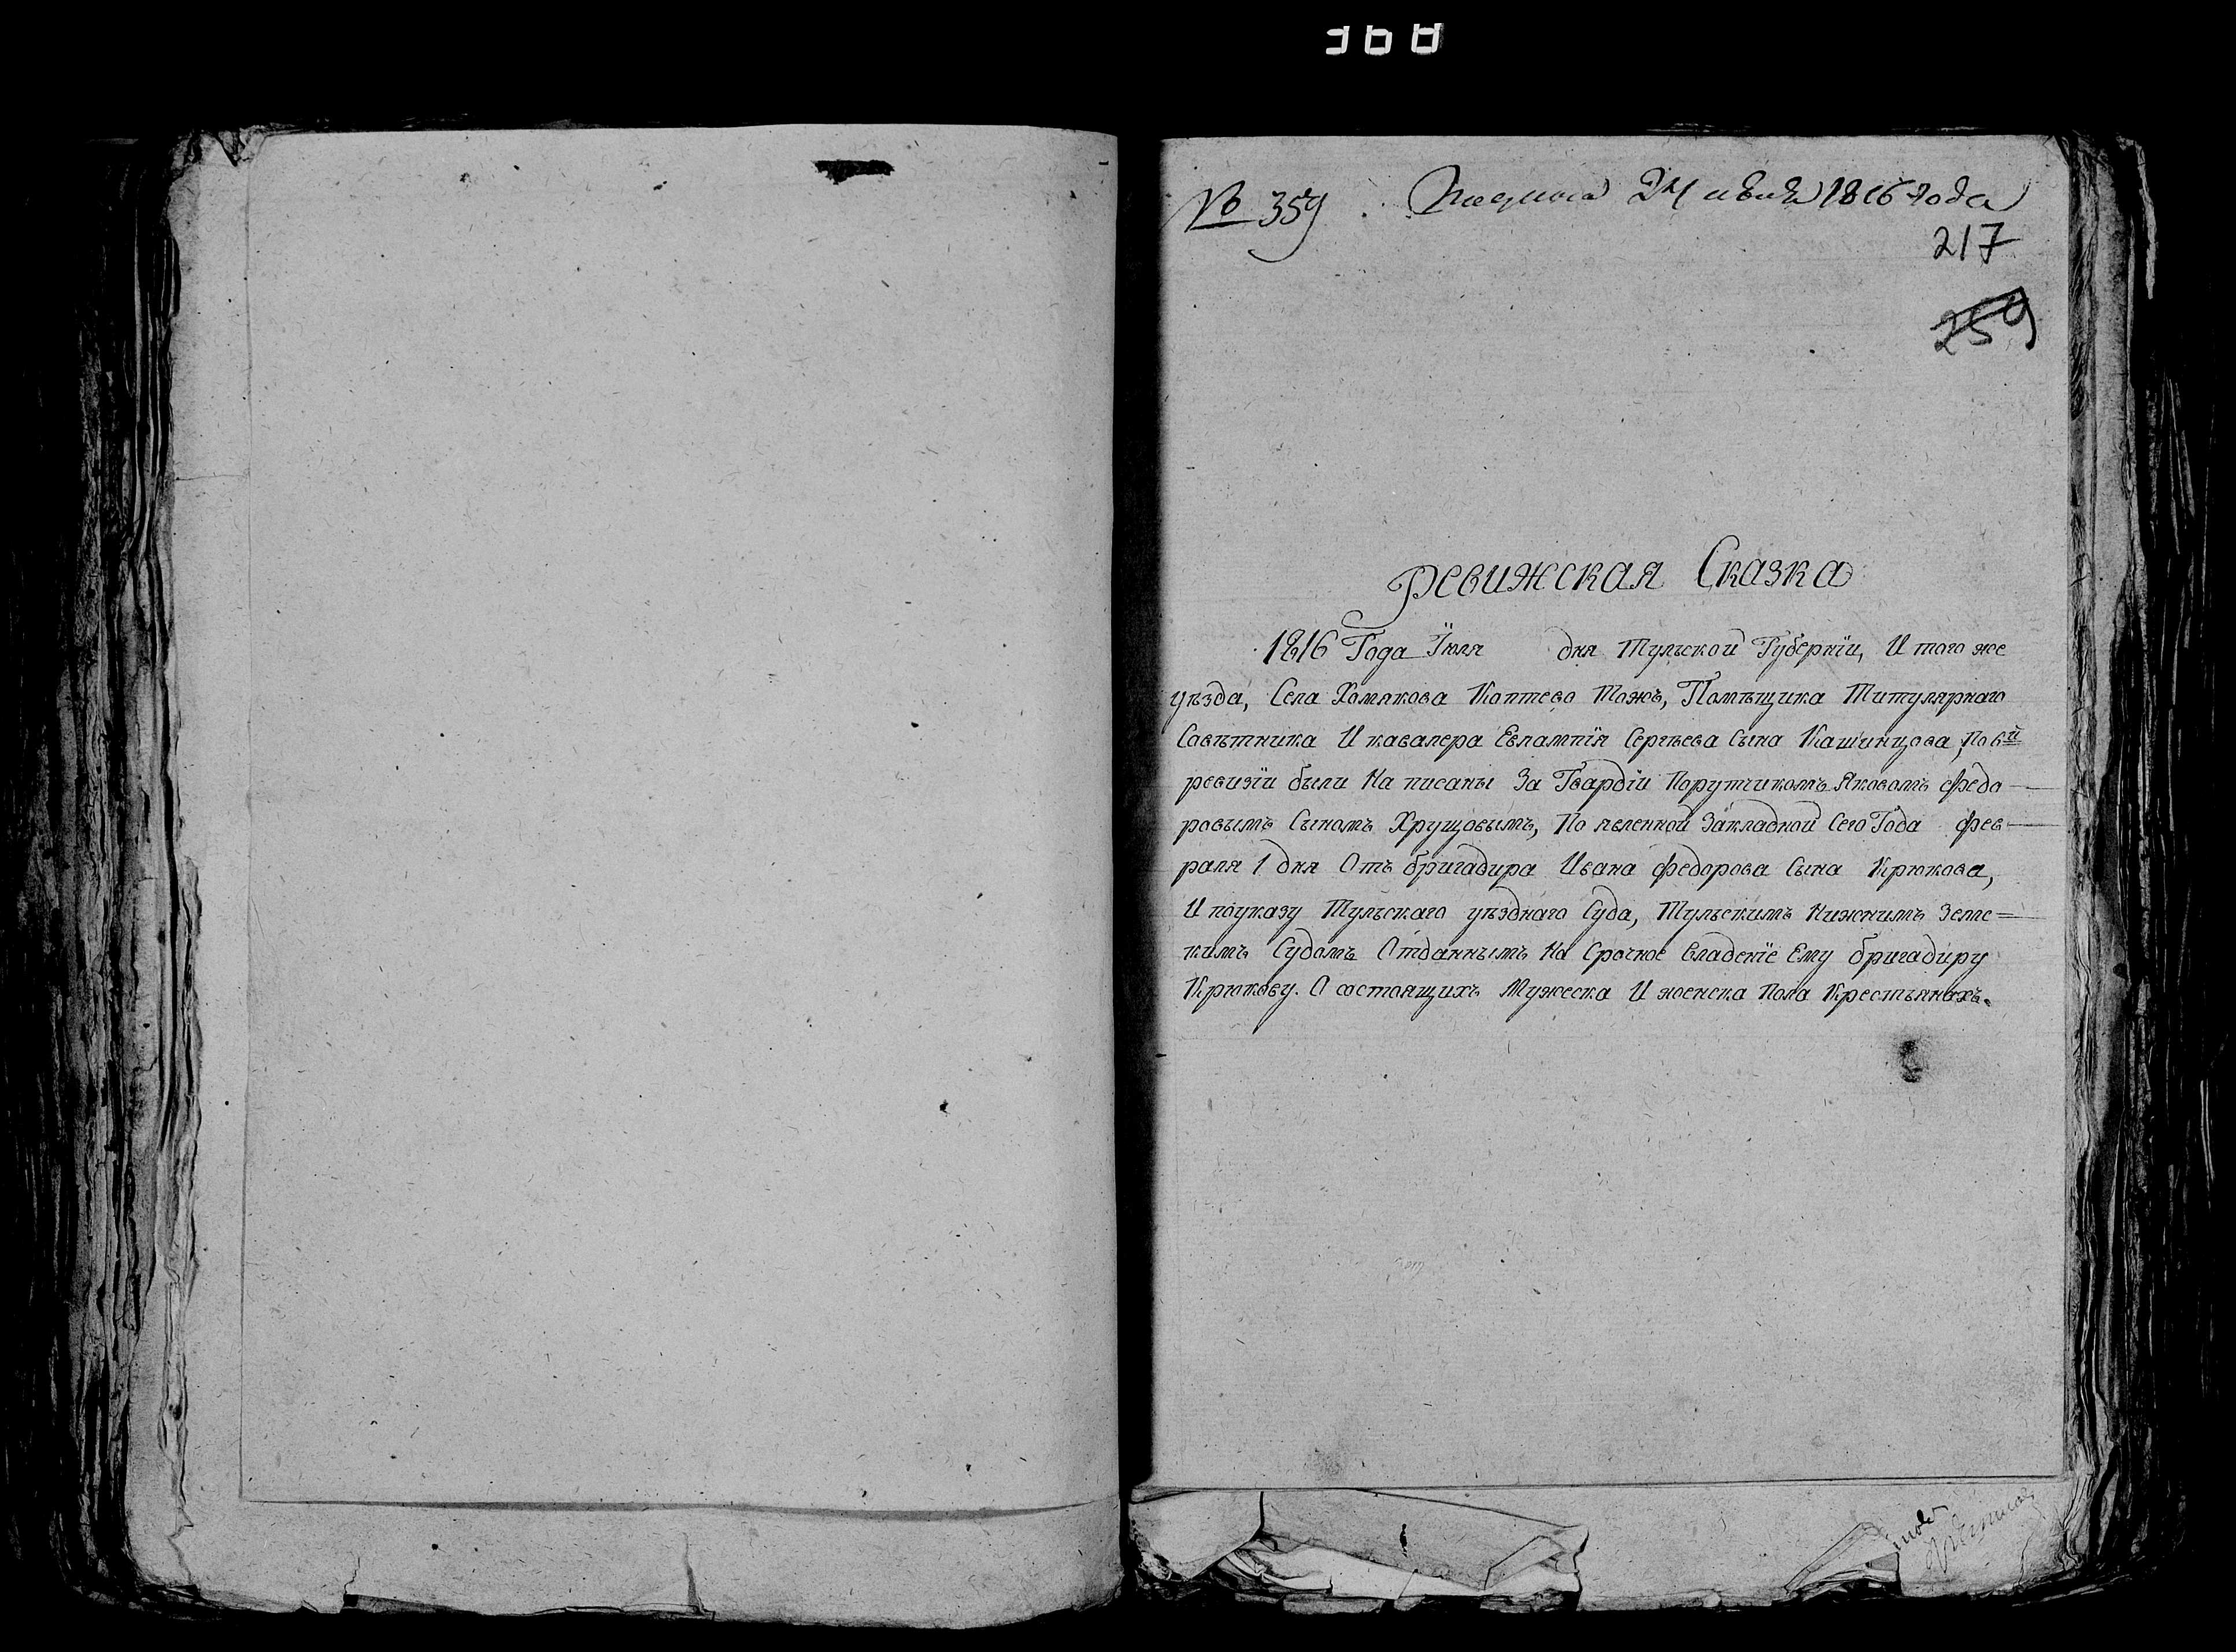 368
№ 359 . Подана 24 июля 1816 года
217
259
Ревижская Сказка
1816 Года Іюля дня Тульской Губерніи, И того же
уѣзда, Села Хомякова Коптево Тожъ, Помѣщика Титулярнаго
Совѣтника И кавалера Евлампія Сергѣева Сына Кашинцова, По 6й
ревизіи были На писаны За Гвардіи Порутчикомъ Яковомъ Федо
ровымъ Сыномъ Хрущовымъ, По явленной Закладной Сего Года фев
раля 1 дня Отъ бригадира Ивана Федорова Сына Крюкова,
И поуказу Тульскаго уѣзднаго Суда, Тульскимъ Нижнимъ Земс=
кимъ Судомъ Отданнымъ На Срочное владеніе Ему бригадиру
Крюкову. О состоящихъ Мужеска И женска Пола Крестьянахъ.